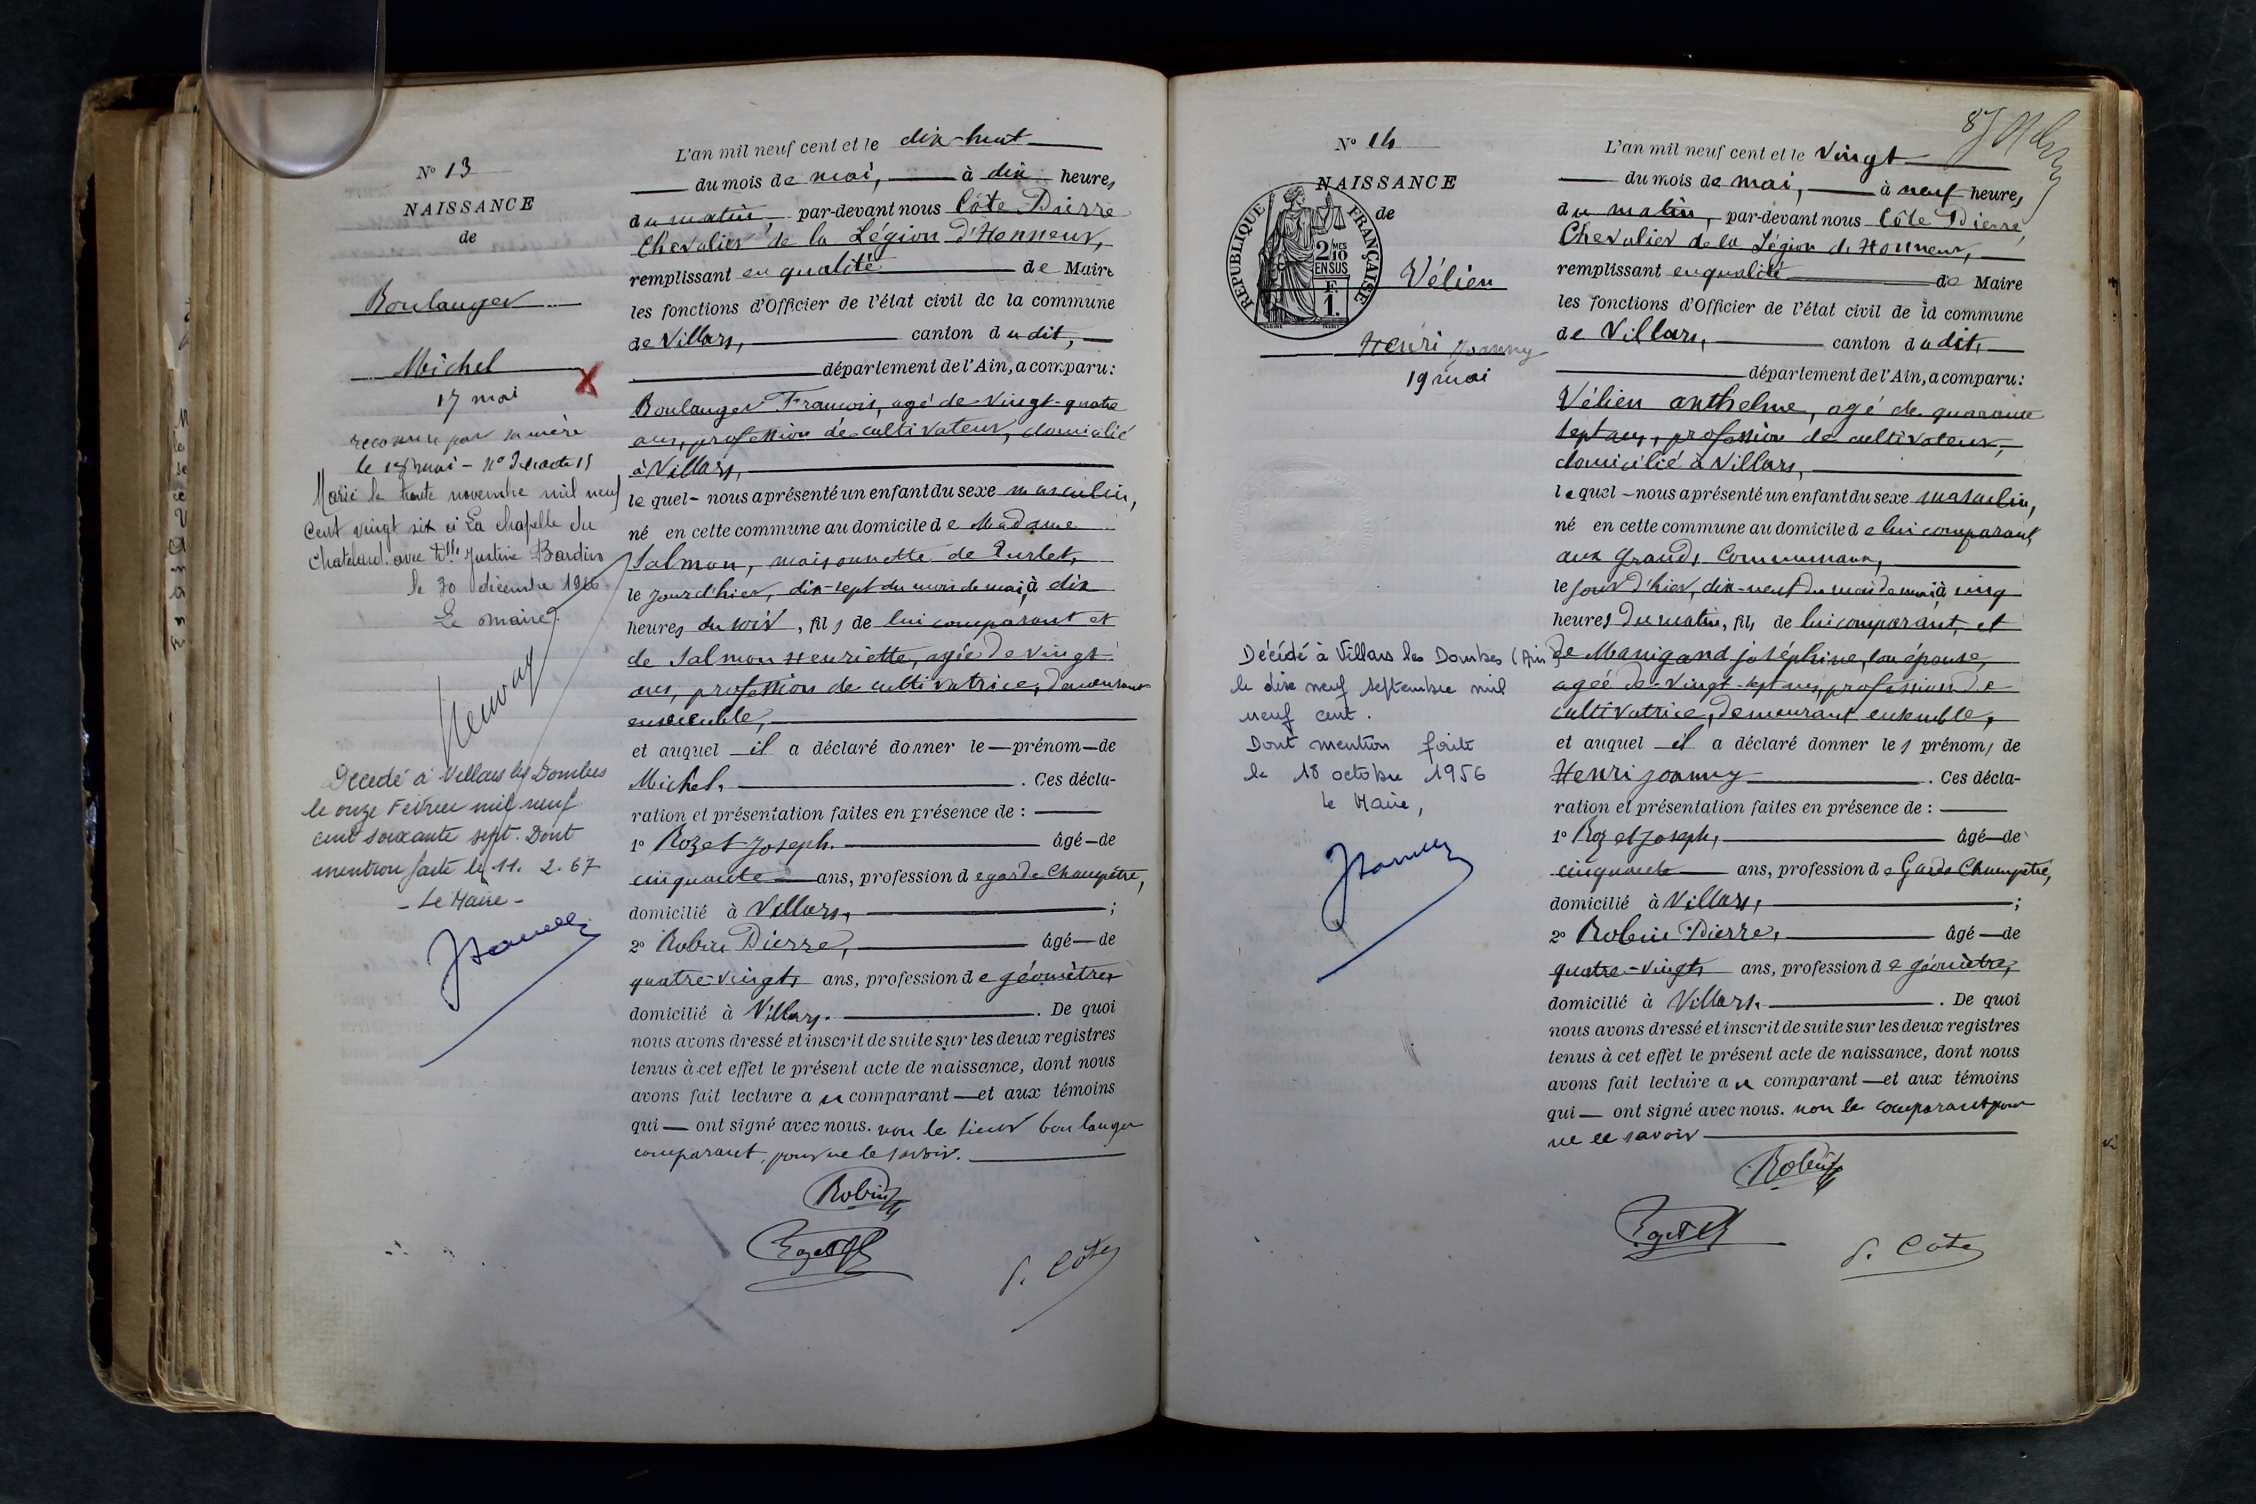 N° 13
NAISSANCE
de
Boulanger
Michel
17 mai
reconnu par sa mère
le 18 mai - n° de l'acte 15
Marié le trente novembre mil neuf
cent vingt six à La Chapelle du
Chatelard avec Dlle Justine Bardin
le 30 décembre 1926
Le maire
Décédé à Villars les Dombes
le onze Février mil neuf
cent soixante sept. Dont
mention faite le 11. 2. 67
- Le Maire -
L'an mil neuf cent et le dix-huit
du mois de mai, à dix heures
du matin par-devant nous Côte Pierre
Chevalier de la Légion d'Honneur,
remplissant en qualité de Maire
les fonctions d'Officier de l'état civil de la commune
de Villars, canton dudit,
département de l'Ain, a comparu :
Boulanger François, agé de vingt-quatre
ans, profession de cultivateur, domicilié
à Villars,
lequel - nous a présenté un enfant du sexe masculin,
né en cette commune au domicile de Madame
Salmon, maisonnette de
le jour d'hier, dix-sept du mois de mai, à dix
heures du soir, fils de lui comparant et
de Salmon Henriette, agée de vingt
ans, profession de cultivatrice, demeurant
ensemble,
et auquel il a déclaré donner le — prénom — de
Michel. . Ces décla-
ration et présentation faites en présence de :
1° Rozet Joseph. âgé — de
cinquante ans, profession de garde Champêtre,
domicilié à Villars, ;
2° Robin Pierre, âgé — de
quatre-vingts ans, profession de géomètre,
domicilié à Villars. . De quoi
nous avons dressé et inscrit de suite sur les deux registres
tenus à cet effet le présent acte de naissance, dont nous
avons fait lecture au comparant — et aux témoins
qui — ont signé avec nous. non le sieur boulanger
comparant, pour ne le savoir.
Robin
Rozet
P. Côte
87
N° 14
NAISSANCE
de
RÉPUBLIQUE FRANÇAISE
2 MES
10
EN SUS
F.
1.
Vélien
Henri Joanny
19 mai
Décédé à Villars les Dombes (Ain)
le dix neuf septembre mil
neuf cent.
Dont mention faite
le 18 octobre 1956
Le Maire,
L'an mil neuf cent et le vingt
du mois de mai, à neuf heures
du matin, par-devant nous Côte Pierre,
Chevalier de la Légion d'Honneur,
remplissant en qualité de Maire
les fonctions d'Officier de l'état civil de la commune
de Villars, canton dudit,
département de l'Ain, a comparu :
Vélien anthelme, agé de quarante
sept ans, profession de cultivateur,
domicilié à Villars,
lequel — nous a présenté un enfant du sexe masculin,
né en cette commune au domicile de lui comparant
aux Grands Communaux,
le jour d'hier, dix-neuf du mois de mai, à cinq
heures du matin, fils de lui comparant, et
de Manigand joséphine, son épouse,
agée de vingt-sept ans, profession de
cultivatrice, demeurant ensemble,
et auquel il a déclaré donner les prénoms de
Henri joanny . Ces décla-
ration et présentation faites en présence de :
1° Rozet Joseph, âgé — de
cinquante ans, profession de Garde Champêtre,
domicilié à Villars, ;
2° Robin Pierre, âgé — de
quatre-vingts ans, profession de géomètre,
domicilié à Villars. . De quoi
nous avons dressé et inscrit de suite sur les deux registres
tenus à cet effet le présent acte de naissance, dont nous
avons fait lecture au comparant — et aux témoins
qui — ont signé avec nous. non le comparant pour
ne le savoir
Robin
Rozet
P. Côte